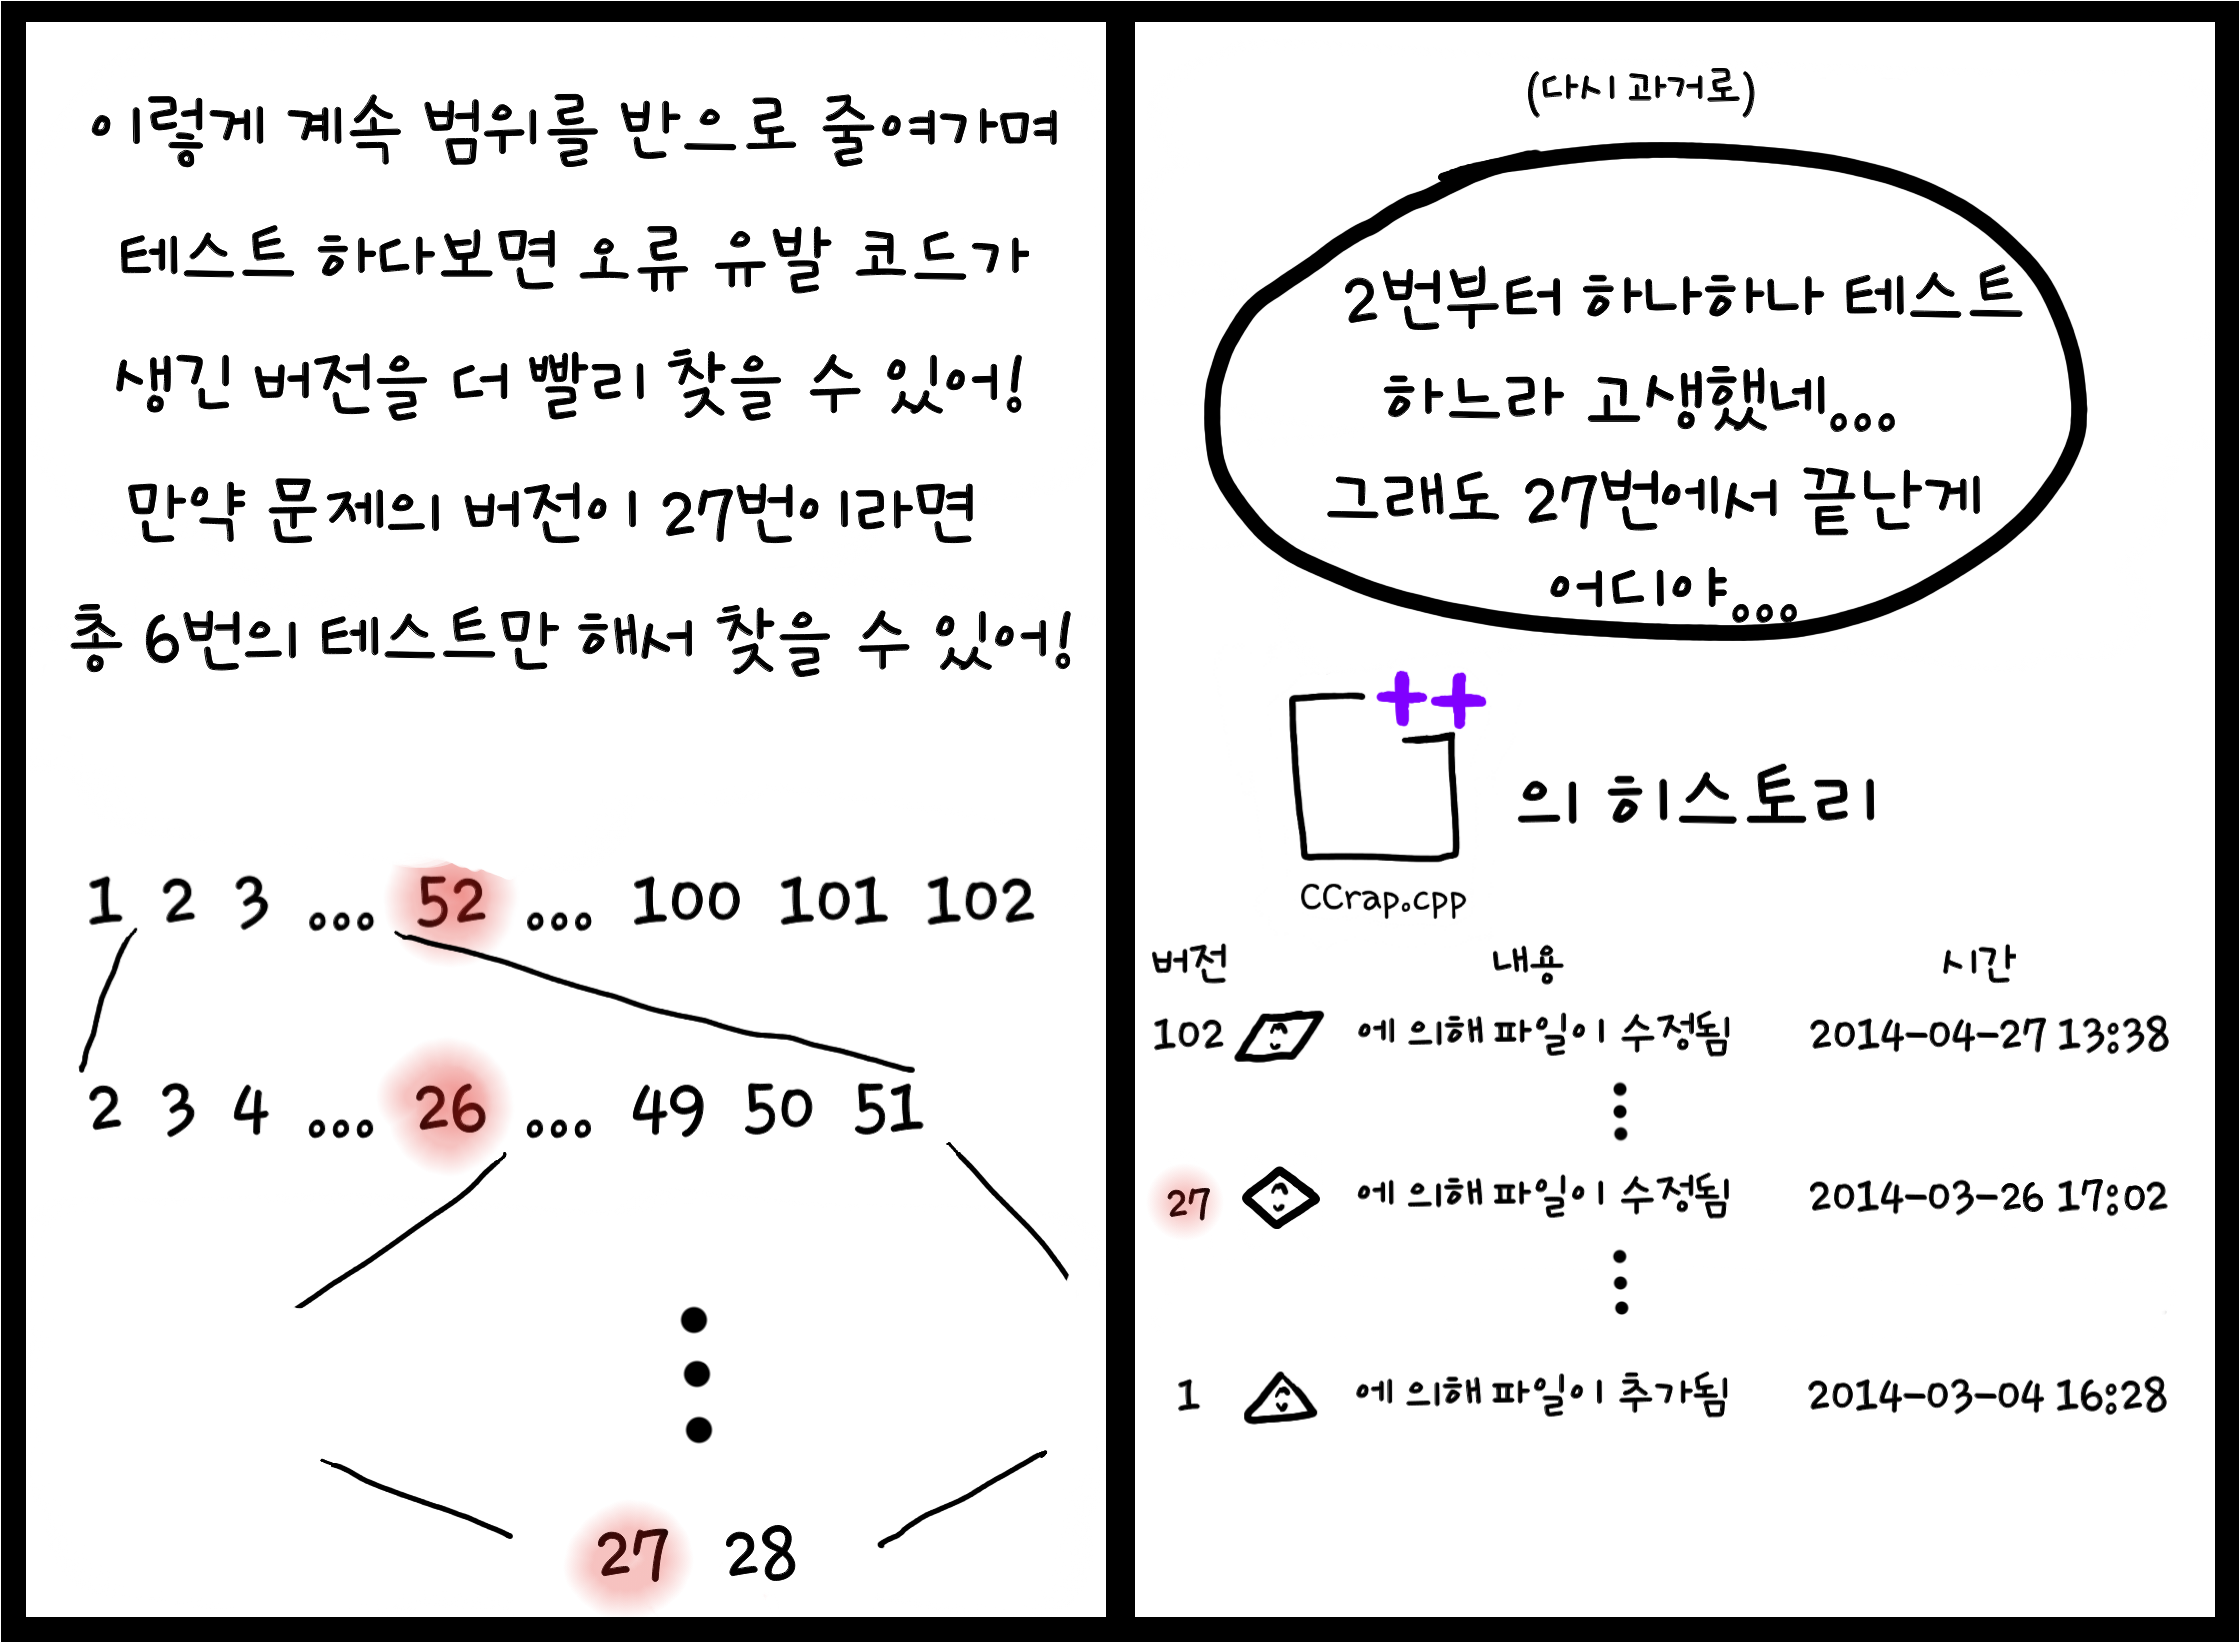 이렇게 계속 범위를 반으로 줄여가며
테스트 하다보면 오류 유발 코드가
생긴 버전을 더 빨리 찾을 수 있어!
만약 문제의 버전이 27번이라면
총 6번의 테스트만 해서 찾을 수 있어!
1 2 3 ... 52 ... 100 101 102
2 3 4 ... 26 ... 49 50 51
27 28
(다시 과거로)
2번부터 하나하나 테스트
하느라 고생했네...
그래도 27번에서 끝난게
어디야...
++
의 히스토리
CCrap.cpp
버전 내용 시간
102 에 의해 파일이 수정됨 2014-04-27 13:38
27 에 의해 파일이 수정됨 2014-03-26 17:02
1 에 의해 파일이 추가됨 2014-03-04 16:28